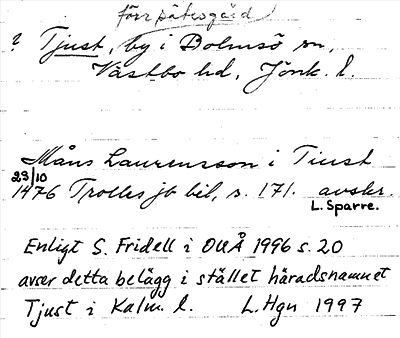 förr sätesgård
? Tjust, by i Bolmsö sn,
Västbo hd, Jönk. l.
Måns Laurensson i Tiust
23/10
1476 Trolles jb bil, s. 171. avskr.
L. Sparre.
Enligt S. Fridell i OUÅ 1996 s. 20
avser detta belägg i stället häradsnamnet
Tjust i Kalm. l. L. Hgn 1997